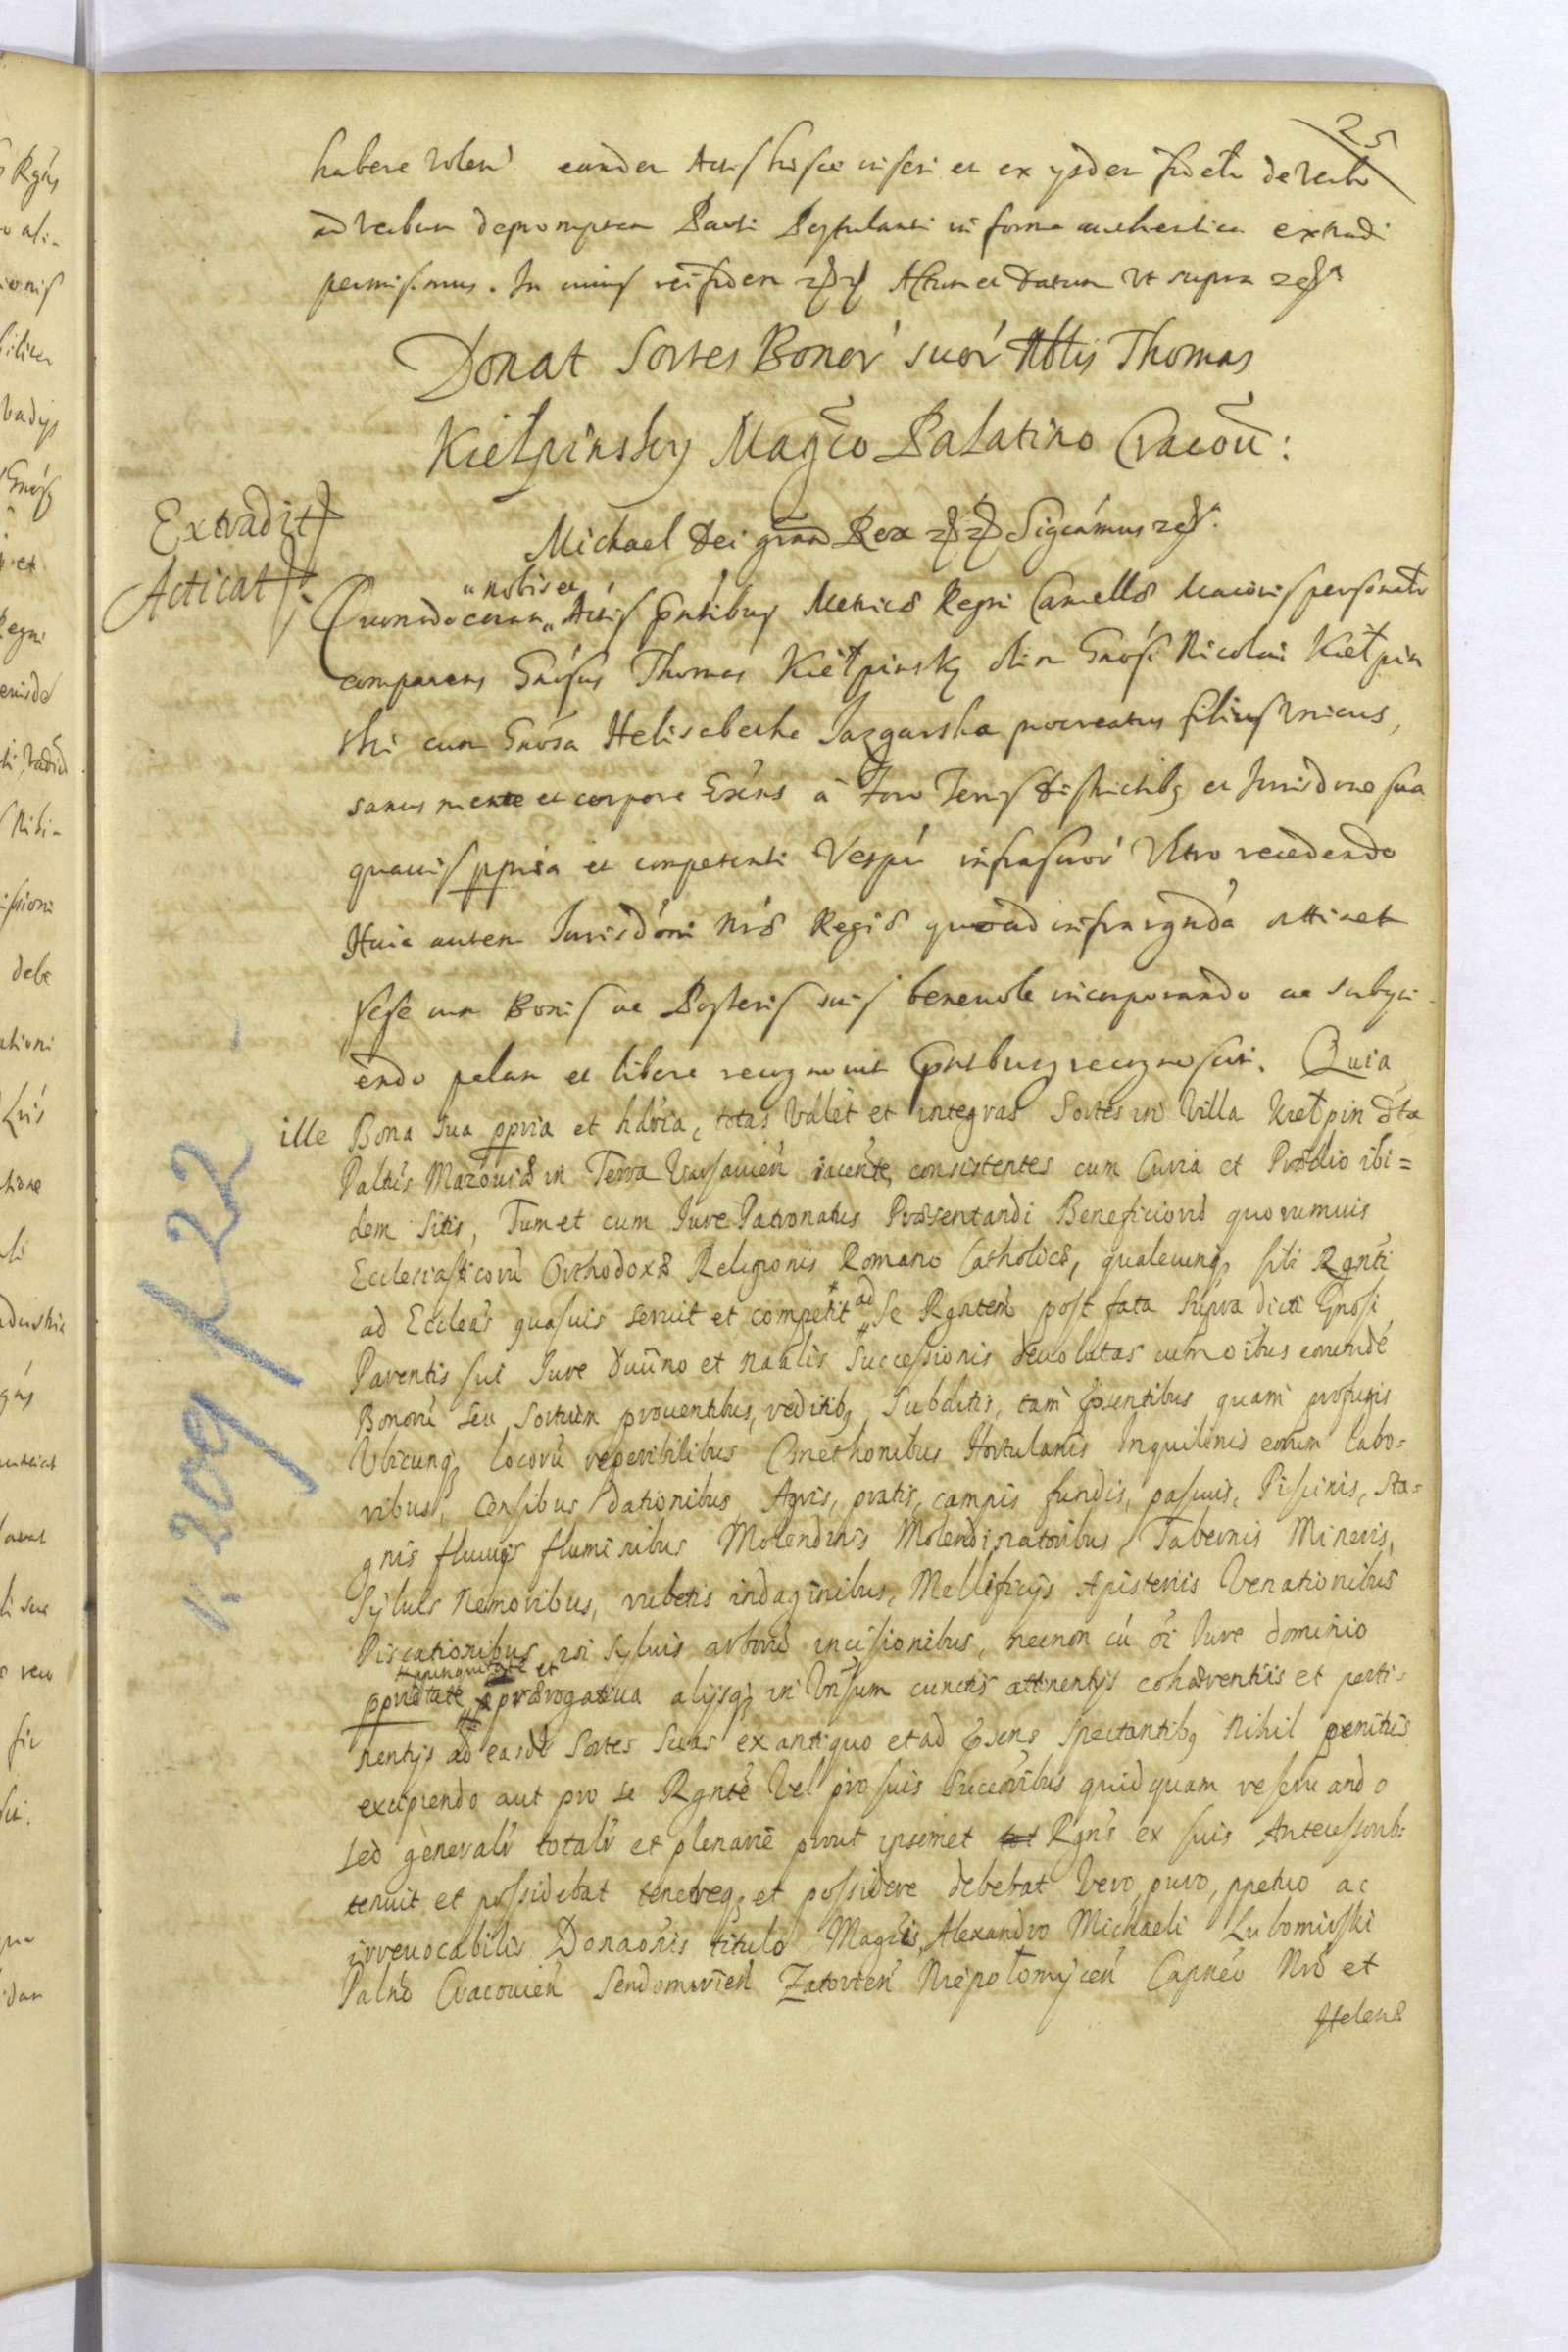 25
habere volens eandem Actis hisce inseri et ex ysdem fideliter de verbo
ad verbum depromptam Parti Postulanti in forma authentica extradi
permisimus. In cuius rei fidem Actum et Datum Vt supra
Donat Sortes Bonor' suor' Nblis Thomas
Kiełpinsky Magco Palatino Cracou:
Extradit
Michael Dei gratia Rex Sigcamus
Acticat
nobis et
Quomodo coram Actis pntibus Metrices Regni Cancellae Maioris personalr
comparens Gnosus Thomas Kiełpinsky olim Gnosi Nicolai Kiełpin
ski cum Gnosa Helisabetha Jazgarska procreatus filius Vnicus,
sanus mente et corpore Exens a Foro Terris Districtibq et Jurisdone sua
quauis ppria et competenti Respu infrascror' Vltro recedendo
Huic autem Jurisdoni Nrae Regiae quoad infra rgnda attinet
sese cum Bonis ac Posteris suis beneuole incorporando ac subyci
endo palam et libere recognouit pntibusq recognoscit. Quia
ille Bona sua ppria et hdria, totas Vdlet et integras Sortes in Villa Kiełpin dta
Paltus Mazouiae in Terra Varsauien iacente, consistentes cum Curia et Praedio ibi=
dem sitis, Tum et cum Jure Patronatus Praesentandi Beneficiorum quorumuis
Ecclesiasticoru Orthodoxae Religionis Romano Catholicae, qualecunq sibi Rgnti
ad Eccleas quasuis seruit et competit ad se Rgntem post fata supra dicti Gnosi
Parentis sui Jure Diuino et naalis successionis deuolutas cum oibus eorumde
Bonoru seu Sortium prouentibus, reditibq Subditis, tam psentibus quam profugis
Vbicunq locoru reperibilibus Cmethonibus Hortulanis Inquilinis eorum labo=
ribus, Censibus dationibus Agris, pratis, campis fundis, pascuis, Piscinis, sta=
gnis fluuijs fluminibus Molendinis Molendinatoribus Tabernis Mineris,
Syluis Nemoribus, rubetis indaginibus, Mellificijs Apisterijs Venationibus
Piscationibus in syluis arboru incisionibus, necnon cu oi Jure dominio
et
pprietate praerogatiua alijsq in Vnsum cunctis attinentijs cohaerentiis et perti=
nentijs ad easde Sortes suas ex antiquo et ad psens spectantibq Nihil penitus
excipiendo aut pro se Rgnte Vel pro suis succoribus quidquam reseruando
sed generalr totalr et plenarie prout ipsemet Rgns ex suis Antecessorib:
tenuit et possidebat tenereq et possidere debebat Vero, puro, ppetuo ac
irreuocabilis Donaonis titulo Magcis Alexandro Michaeli Lubomirski
Palno Cracouien Sendomirien Zatorien Niepołomycen Capneo Nro et
Helenae
V. 209 / 22